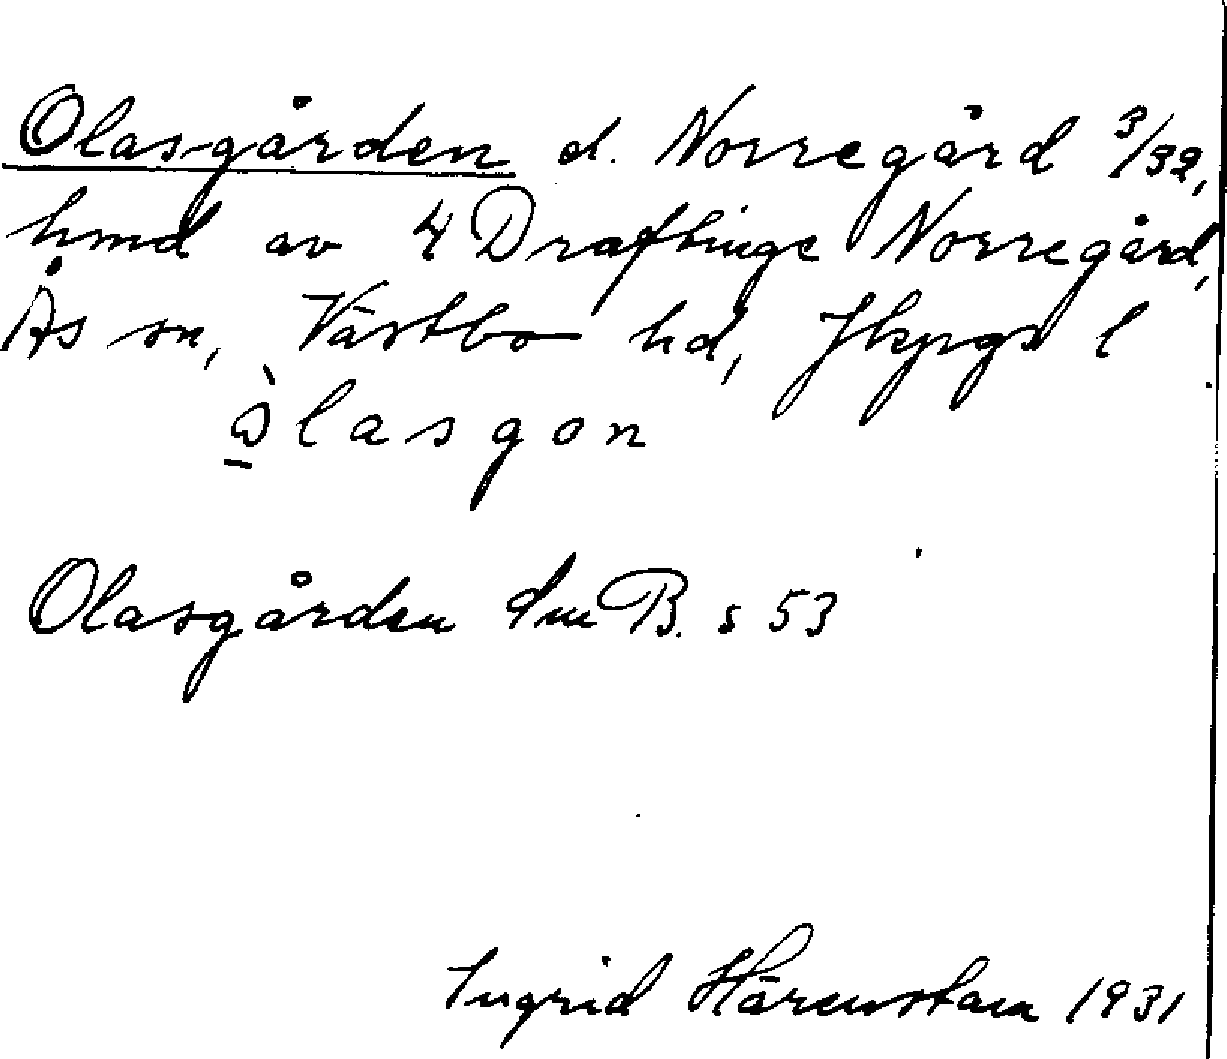 Olasgården d. Norregård 3/32,
hmd av 4 Draftinge Norregård,
Ås sn, Västbo hd, Jkpgs l
òlasgon
Olasgården dm B. s 53
Ingrid Härenstam 1931